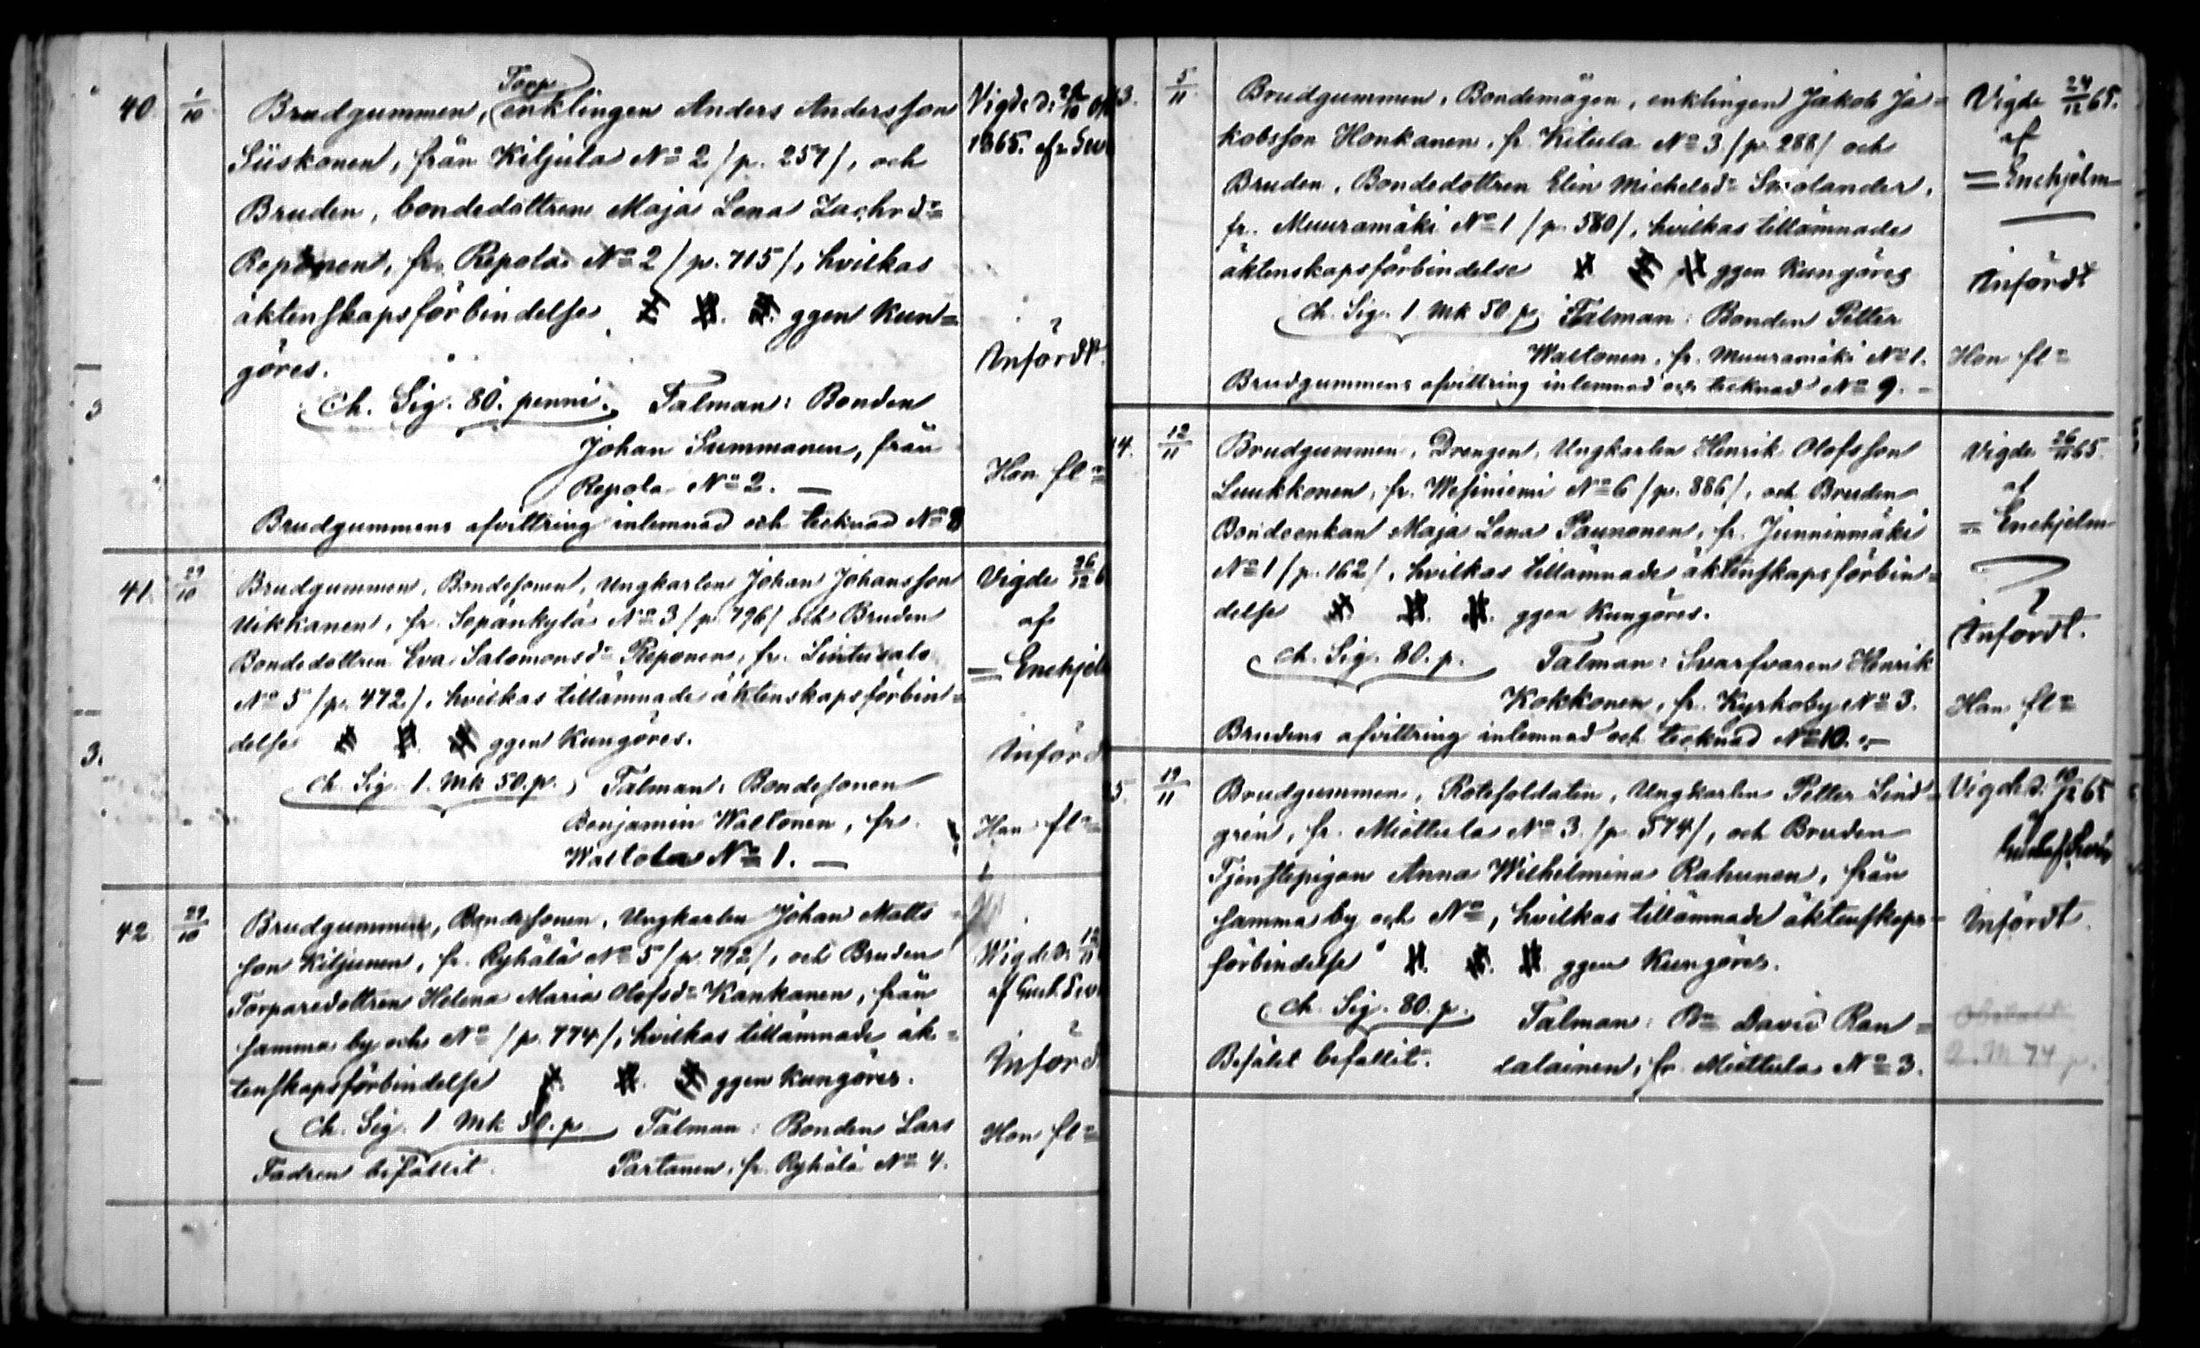 40. 1/10 Brudgummen, Torp. enklingen Anders Andersson
Siiskonen, från Kiljula No 2 /p. 257/, och
Bruden, bondedottren Maja Lena Zachrd=
Reponen, fr. Repola No 2 /p. 715/, hvilkas
äktenskapsförbindelse ggen Kun=
göres.
Ch. Sig. 80. penni. Talman: Bonden
Johan Summanen, från
Repola No 2. —
Brudgummens afvittring inlemnad och tecknad No 8
Vigde d.
1865. af
Infördt.
Hon fl=
41. 29/10 Brudgummen, Bondesonen, Ungkarlen Johan Johansson
Uikkanen, fr. Sepänkylä No 3 /p. 796/ och Bruden
Bondedottren Eva Salomonsd= Reponen, fr. Lintusalo
No 5 /p. 472/, hvilkas tillämnade äktenskapsförbin=
delse ggen Kungöres.
Ch. Sig. 1. Mk 50. p. Talman: Bondesonen
Benjamin Waltonen, fr.
Waltola No 1. —
Vigde 26/12 6
af
= Enehjel
Införd
Han fl=
42 29/10 Brudgummen, Bondesonen, Ungkarlen Johan Matts
son Kiljunen, fr. Ryhälä No 5 /p. 772/, och Bruden
Torparedottren Helena Maria Olofsd= Kankanen, från
samma by och No /p. 774/, hvilkas tillämnade äk=
tenskapsförbindelse ggen Kungöres.
Ch. Sig. 1 Mk 50. p. Talman: Bonden Lars
Fadren bifallit. Partanen, fr. Ryhälä No 4.
Wigde d. 12
af
Införd
Hon fl=
3. 5/11 Brudgummen, Bondemågen, enklingen Jakob Ja=
kobsson Honkanen, fr. Kitula No 3. /p. 288/ och
Bruden, Bondedottren Elin Michelsd= Smolander,
fr. Muuramäki No 1 /p. 580/, hvilkas tillämnade
äktenskapsförbindelse ggen Kungöres
Ch. Sig. 1 Mk 50 p. Talman: Bonden Petter
Waltonen, fr. Muuramäki No 1.
Brudgummens afvittring inlemnad och tecknad No 9. –
Vigde 24/12 65.
af
= Enehjelm
Infördt
Hon fl=
4. 12/11 Brudgummen, Drengen, Ungkarlen Henrik Olofsson
Luukkonen, fr. Wesiniemi No 6 /p. 886/, och Bruden
Bondeenkan Maja Lena Paunonen, fr. Junninmäki
No 1 /p. 162/, hvilkas tillämnade äktenskapsförbin=
delse ggen Kungöres.
Ch. Sig. 80. p. Talman: Svarfvaren Henrik
Kokkonen, fr. Kyrkoby No 3.
Brudens afvittring inlemnad och tecknad No 10. –
Vigde 26/11 65.
af
= Enehjelm
Infördt.
Han fl=
5. 19/11 Brudgummen, Rotesoldaten, Ungkarlen Petter Lind=
gren, fr. Miettula No 3. /p. 574/, och Bruden
Tjenstepigan Anna Wilhelmina Rahunen, från
samma by och No, hvilkas tillämnade äktenskaps=
förbindelse ggen Kungöres.
Ch. Sig. 80. p. Talman: Bn David Ran=
Befälet bifallit. dalainen, fr. Miettula No 3.
Vigde d. 10/12 65
af
Infördt
2. M 74 p.